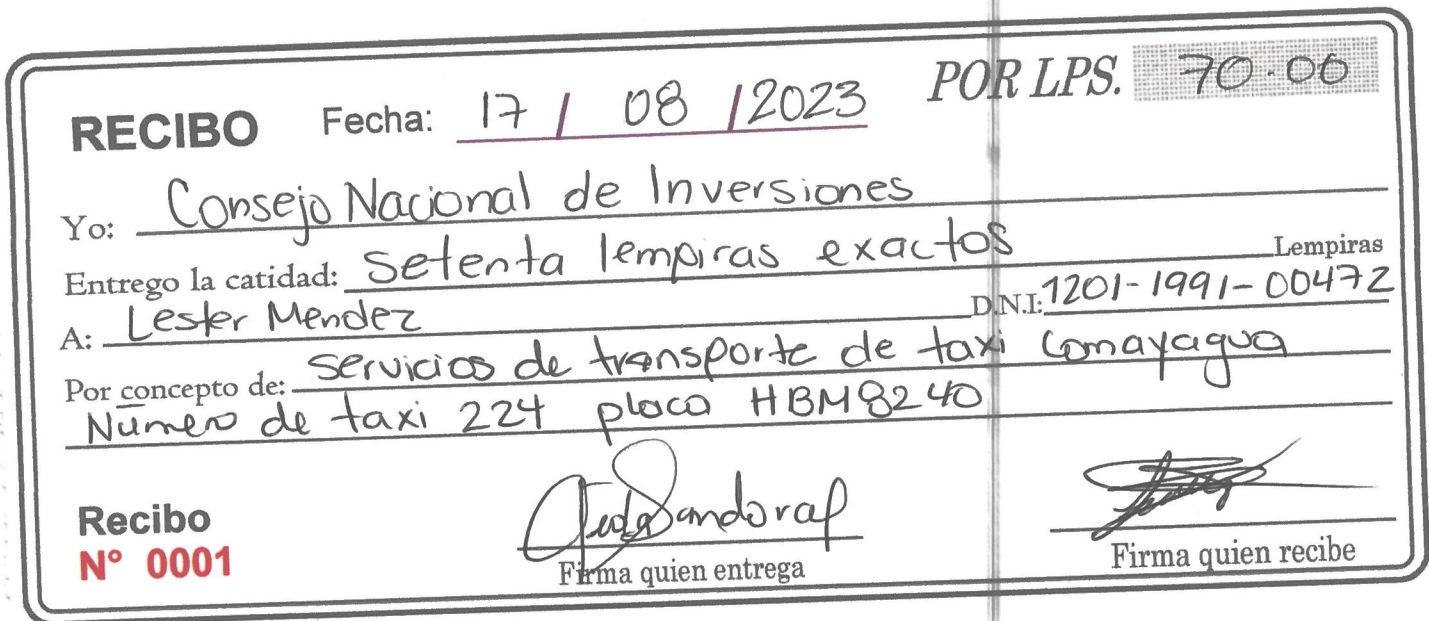 RECIBO Fecha: 17 / 08 / 2023 POR LPS. 70.00
Yo: Consejo Nacional de Inversiones
Entrego la catidad: Setenta lempiras exactos Lempiras
A: Lester Mendez D.N.I: 1201-1991-00472
Por concepto de: servicios de transporte de taxi Comayagua
Número de taxi 224 placa HBM8240
Recibo
Nº 0001
Sandoval
Firma quien entrega
Firma quien recibe